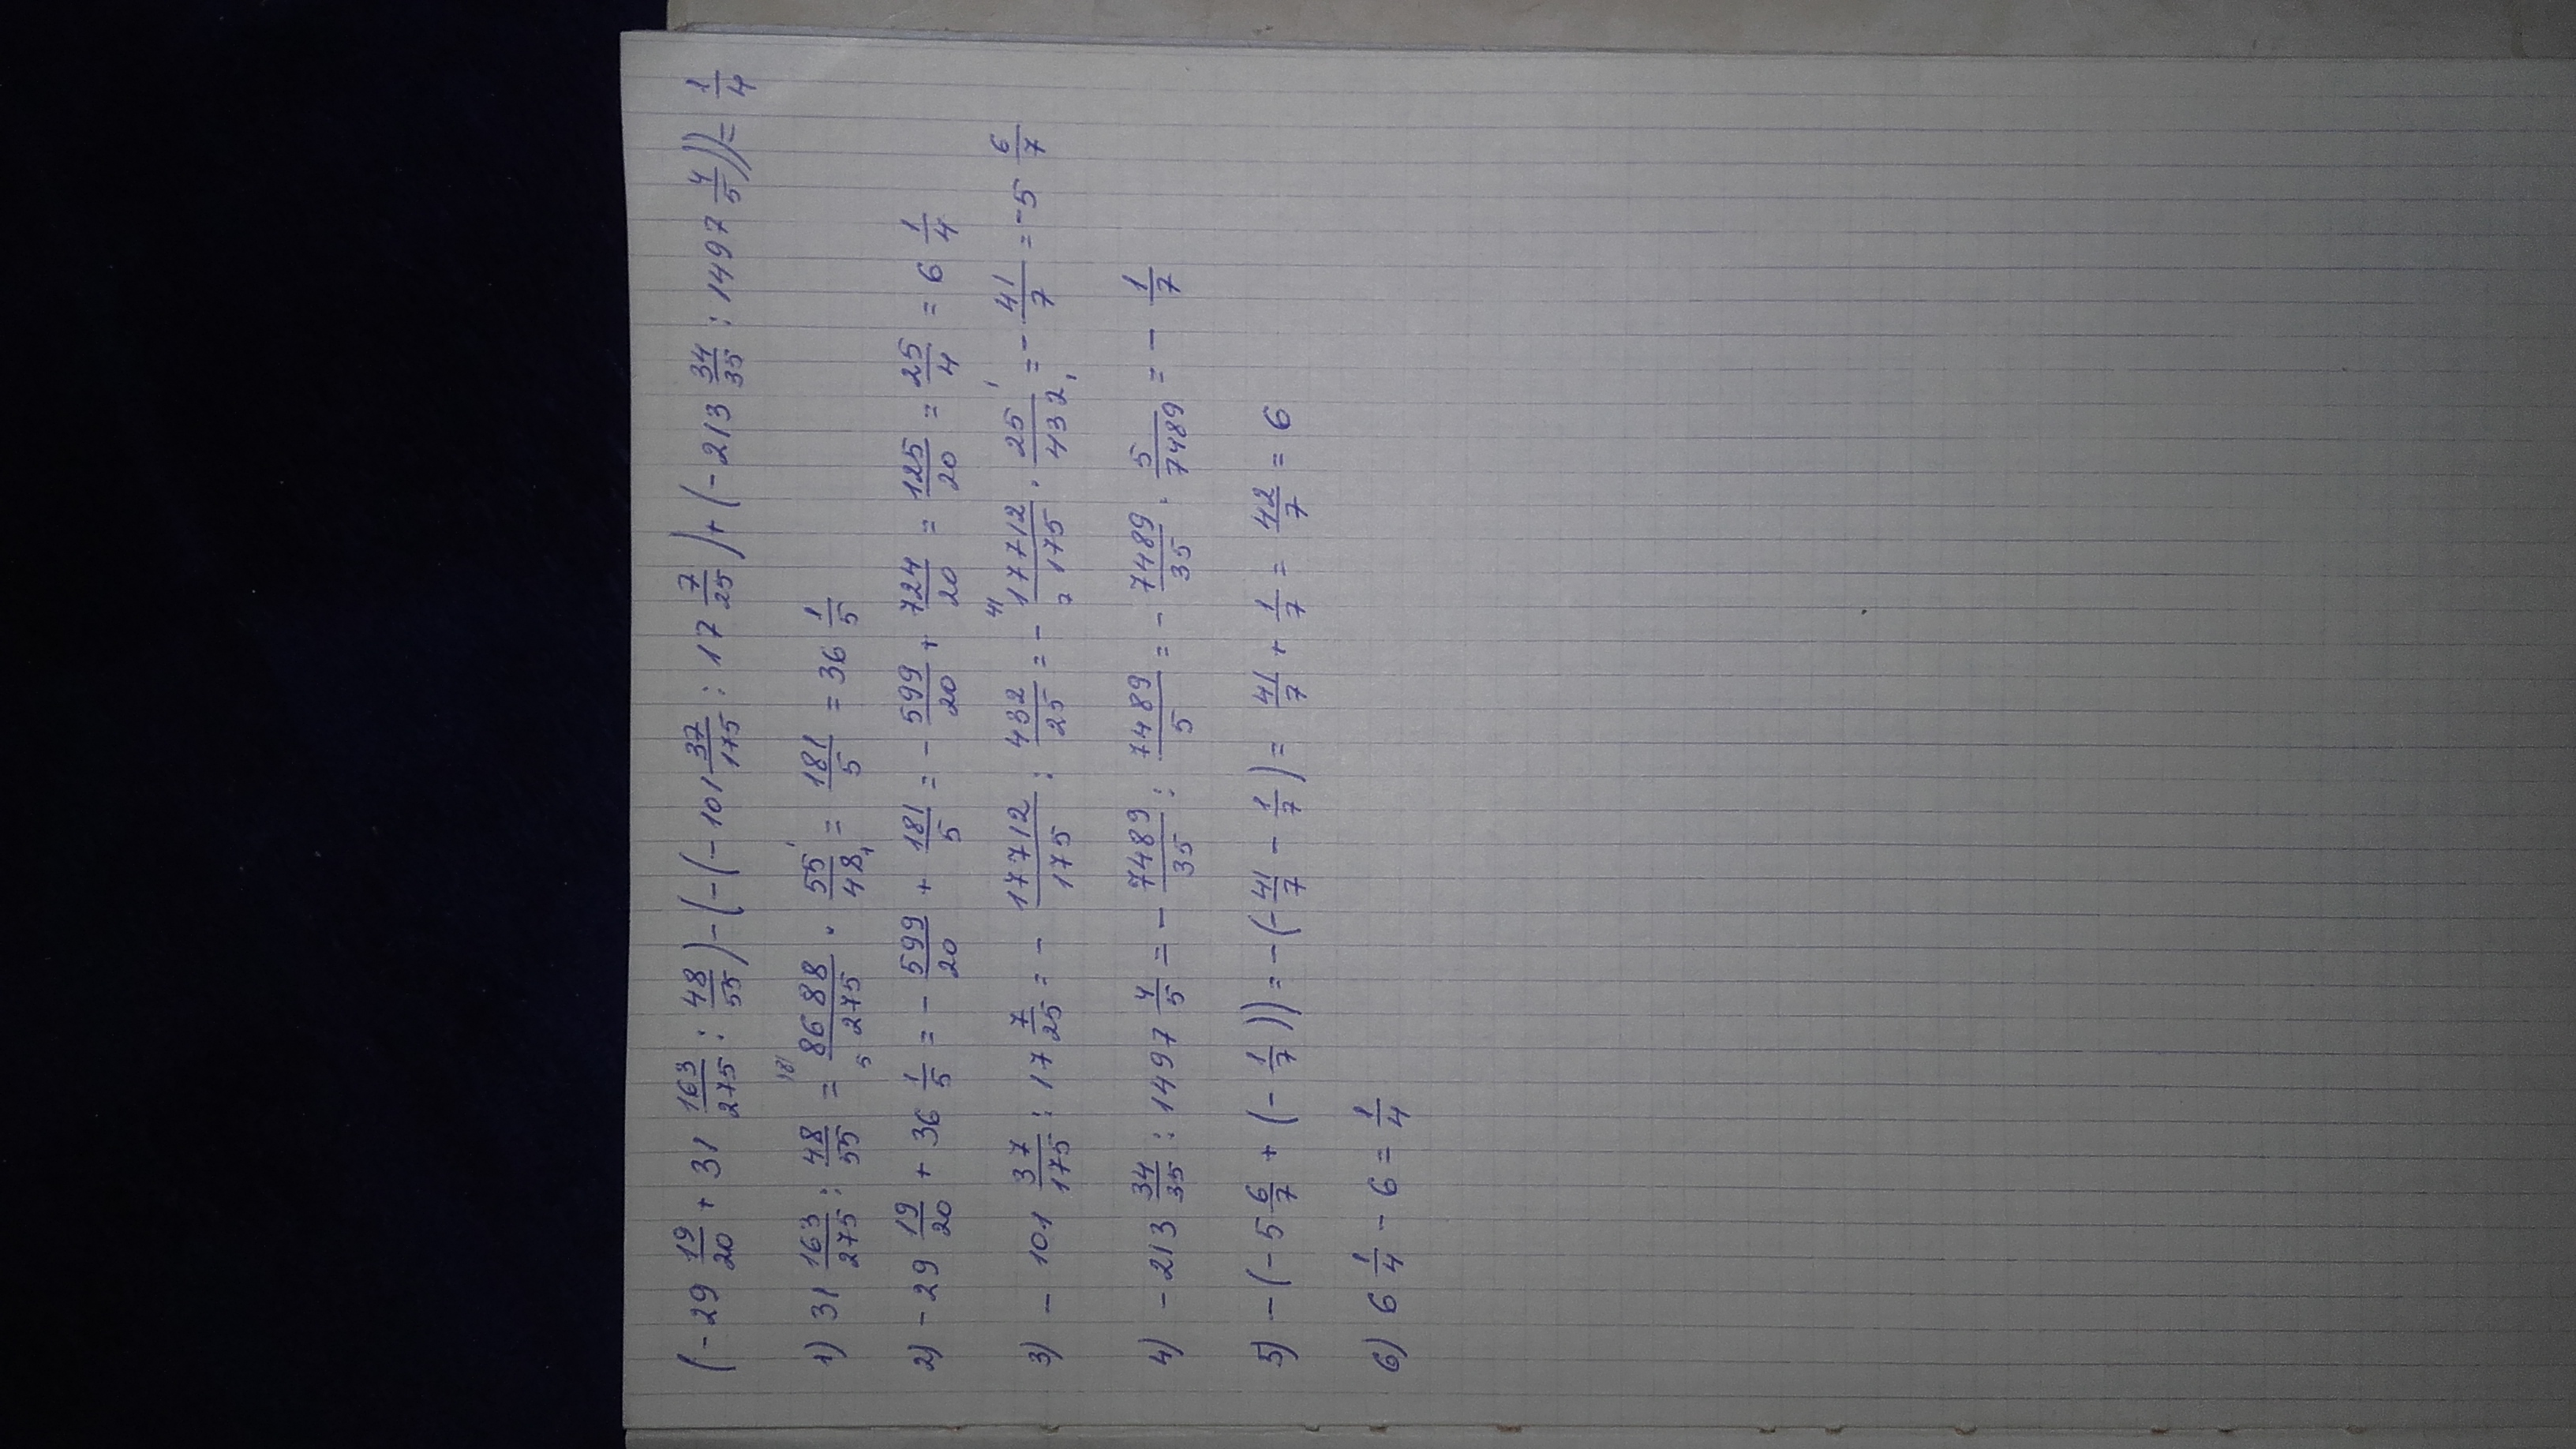 (-29 19/20 + 31 163/275 : 48/55) - (-(-101 37/175 : 17 7/25) + (-213 34/35 : 1497 4/5)) = 1/4
1) 31 163/275 : 48/55 = 8688/275 · 55/48 = 181/5 = 36 1/5
2) -29 19/20 + 36 1/5 = - 599/20 + 181/5 = - 599/20 + 724/20 = 125/20 = 25/4 = 6 1/4
3) - 101 37/175 : 17 7/25 = - 17712/175 : 432/25 = - 17712/175 · 25/432 = - 41/7 = -5 6/7
4) - 213 34/35 : 1497 4/5 = - 7489/35 : 7489/5 = - 7489/35 · 5/7489 = - 1/7
5) - (- 5 6/7 + (- 1/7))) = - (- 41/7 - 1/7) = 41/7 + 1/7 = 42/7 = 6
6) 6 1/4 - 6 = 1/4